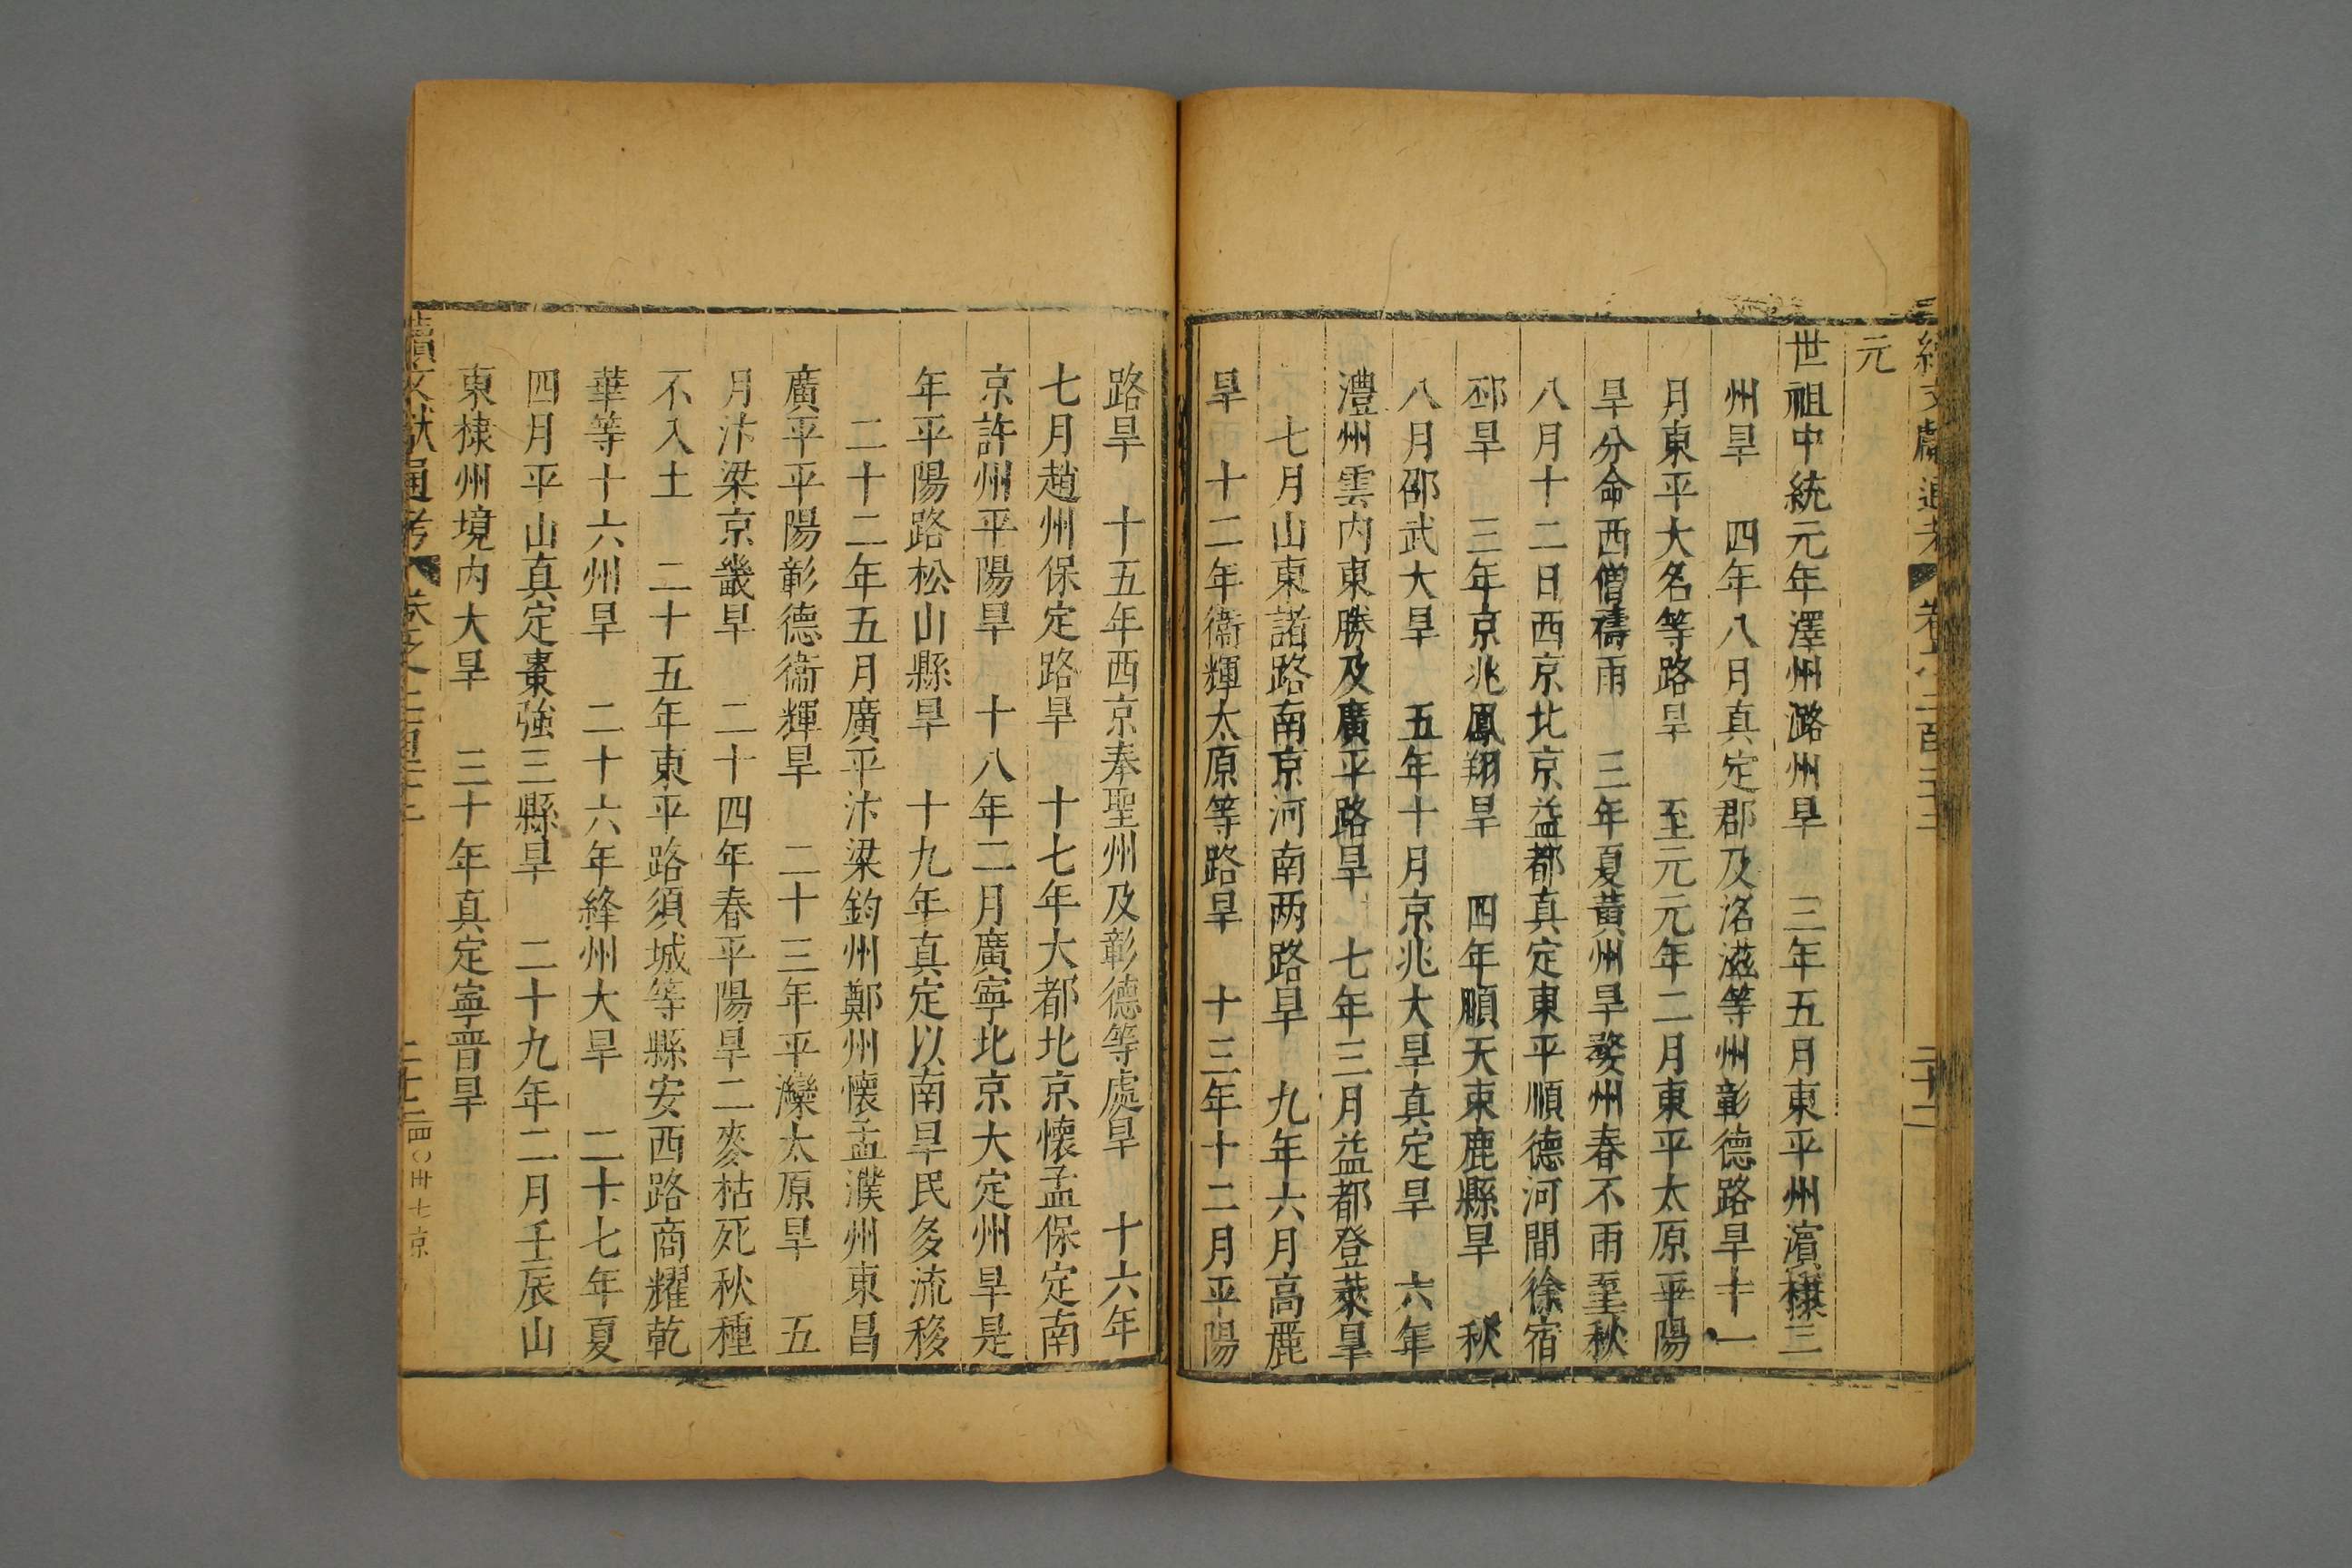 元
世祖中統元年澤州潞州旱　三年五月東平州濵棣三
州旱　四年八月真定郡及洺滋等州彰德路旱十一
月東平大名等路旱　至元元年二月東平太原平陽
旱分命西僧禱雨　三年夏黃州旱婺州春不雨至秋
八月十二日西京北京益都真定東平順德河間徐宿
邳旱　三年京兆鳳翔旱　四年順天束鹿縣旱　秋
八月邵武大旱　五年十月京兆大旱真定旱　六年
澧州雲内東勝及廣平路旱　七年三月益都登萊旱
七月山東諸路南京河南两路旱　九年六月高麗
旱　十二年衞輝太原等路旱　十三年十二月平陽
路旱　十五年西京奉聖州及彰德等處旱　十六年
七月趙州保定路旱　十七年大都北京懷孟保定南
京許州平陽旱　十八年二月廣寧北京大定州旱是
年平陽路松山縣旱　十九年真定以南旱民多流移
二十二年五月廣平汴梁鈞州鄭州懷孟濮州東昌
廣平平陽彰德衞輝旱　二十三年平灤太原旱　五
月汴梁京畿旱　二十四年春平陽旱二麥枯死秋種
不入土　二十五年東平路須城等縣安西路商耀乾
華等十六州旱　二十六年絳州大旱　二十七年夏
四月平山真定棗強三縣旱　二十九年二月壬辰山
東棣州境内大旱　三十年真定寧晋旱
續文獻通考